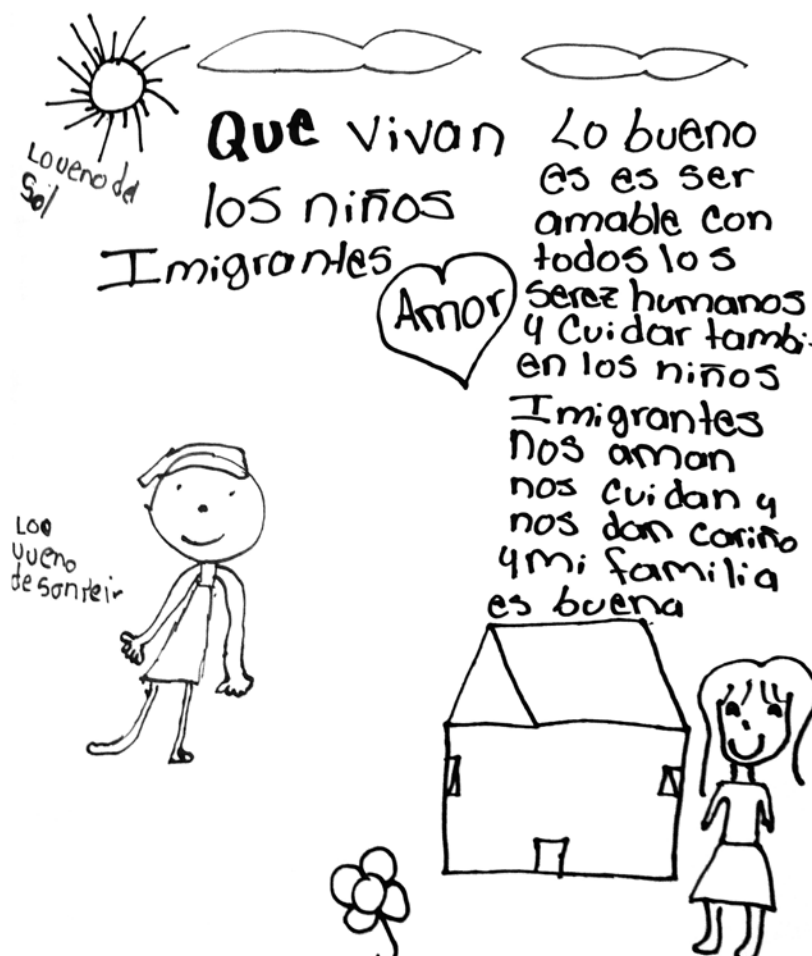 Lo ueno del
Sol
Que vivan
los niños
Imigrantes
Amor
Lo bueno
es es ser
amable con
todos los
serez humanos
y Cuidar tambi-
en los niños
Imigrantes
nos aman
nos cuidan y
nos dan cariño
y mi familia
es buena
Loo
vueno
de sonreir